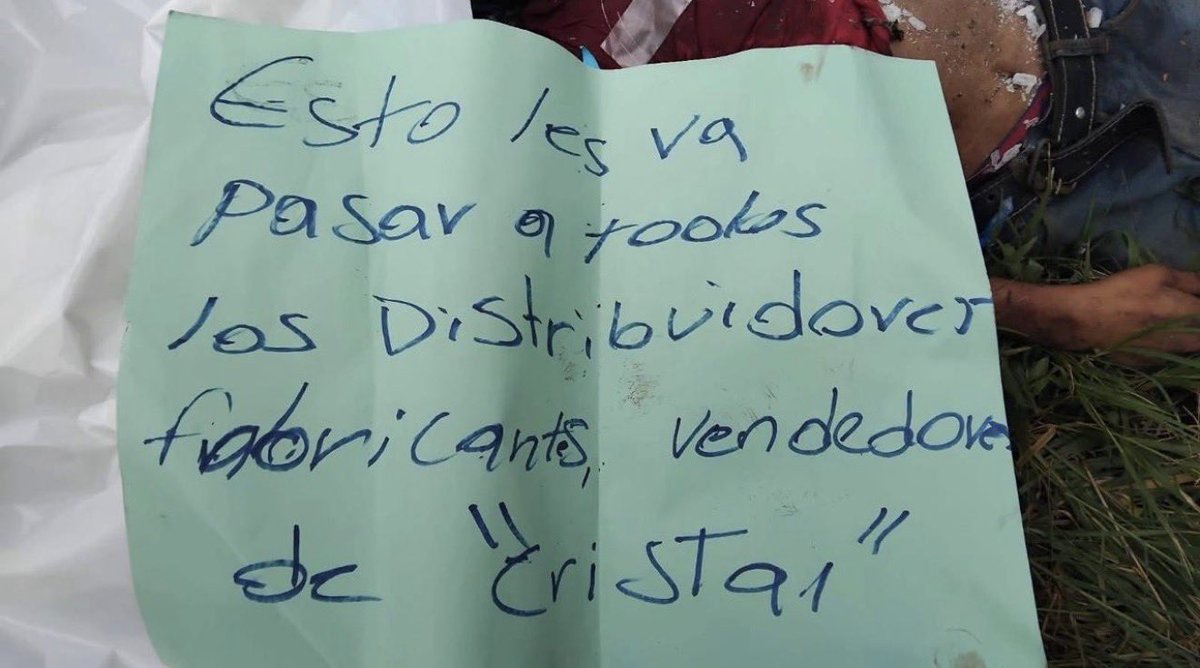 Esto les va
Pasar a todos
los Distribuidores
fabricantes, vendedores
de "Cristal"